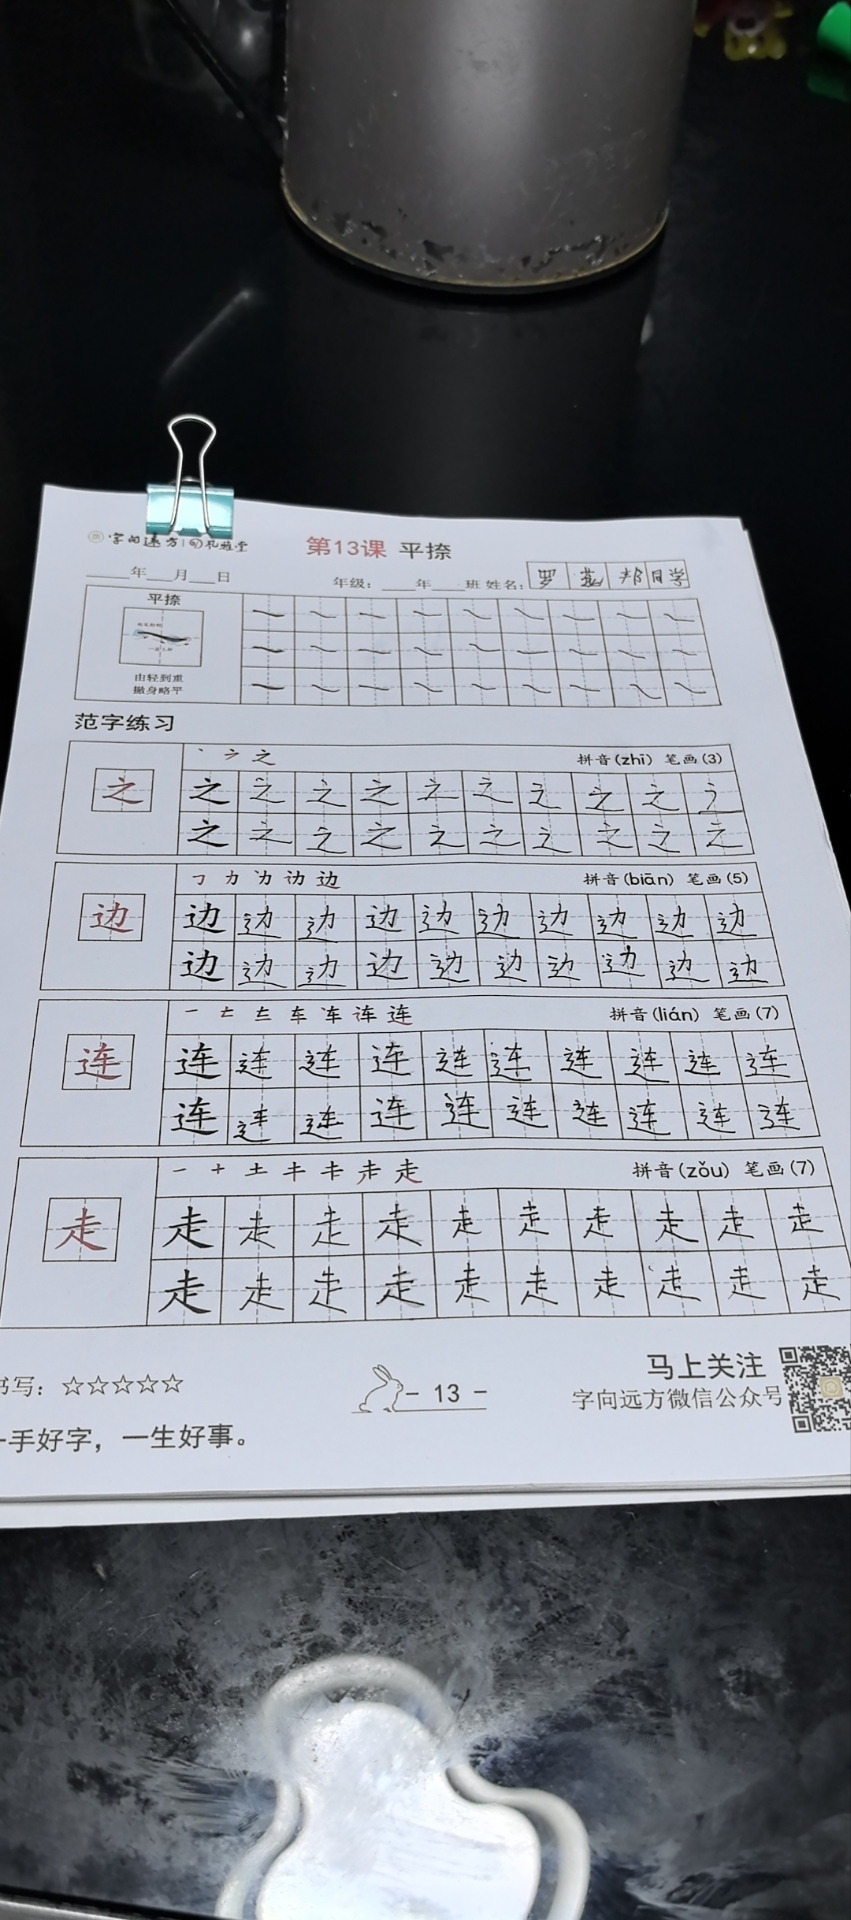 字向远方
第13课 平捺
____年___月___日 年级：____年____班 姓名：罗 邦同学
平捺
由轻到重
撇身略平
范字练习
丶 之 拼音(zhī) 笔画(3)
之 之 之 之 之 之 之 之 之 之 之
之 之 之 之 之 之 之 之 之 之
㇆ 力 边 拼音(biān) 笔画(5)
边 边 边 边 边 边 边 边 边 边 边
边 边 边 边 边 边 边 边 边 边
一 车 连 拼音(lián) 笔画(7)
连 连 连 连 连 连 连 连 连 连 连
连 连 连 连 连 连 连 连 连 连
一 十 土 走 拼音(zǒu) 笔画(7)
走 走 走 走 走 走 走 走 走 走 走
走 走 走 走 走 走 走 走 走 走
书写：☆☆☆☆☆
- 13 -
马上关注
字向远方微信公众号
一手好字，一生好事。